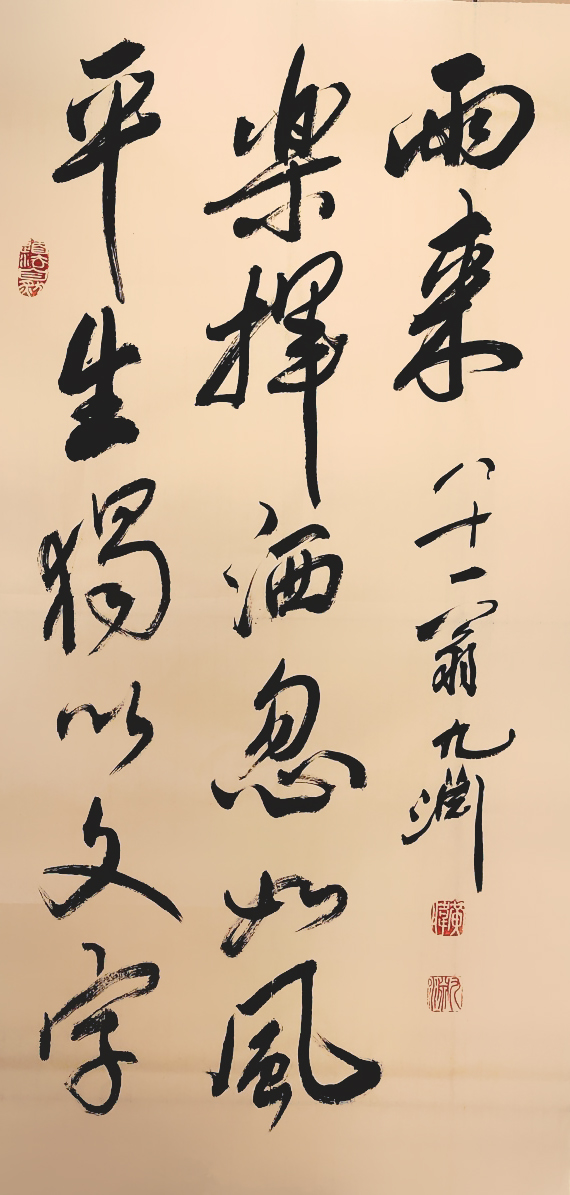 平生獨以文字
楽揮洒忽如風
雨来
八十一翁九淵